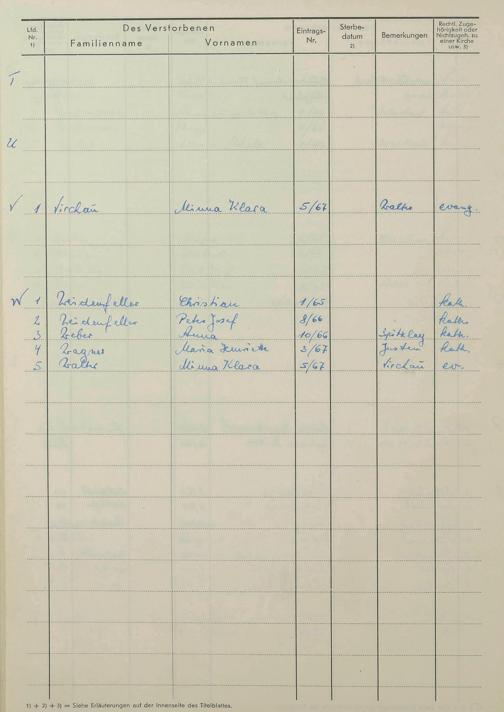 Lfd. Nr. 1) Des Verstorbenen Familienname Vornamen Eintrags-Nr. Sterbe-datum 2) Bemerkungen Rechtl. Zuge-hörigkeit oder Nichtzugeh. zu einer Kirche usw. 3)
T
U
V 1 Virchau Minna Klara 5/67 Walke evang.
W 1 Weidenfeller Christian 1/65 kath.
2 Weidenfeller Peter Josef 8/66 kath.
3 Weber Anna 10/66 kath.
4 Wagner Maria 3/67 kath.
5 Walke Minna Klara 5/67 Virchau ev.
1) + 2) + 3) = Siehe Erläuterungen auf der Innenseite des Titelblattes.